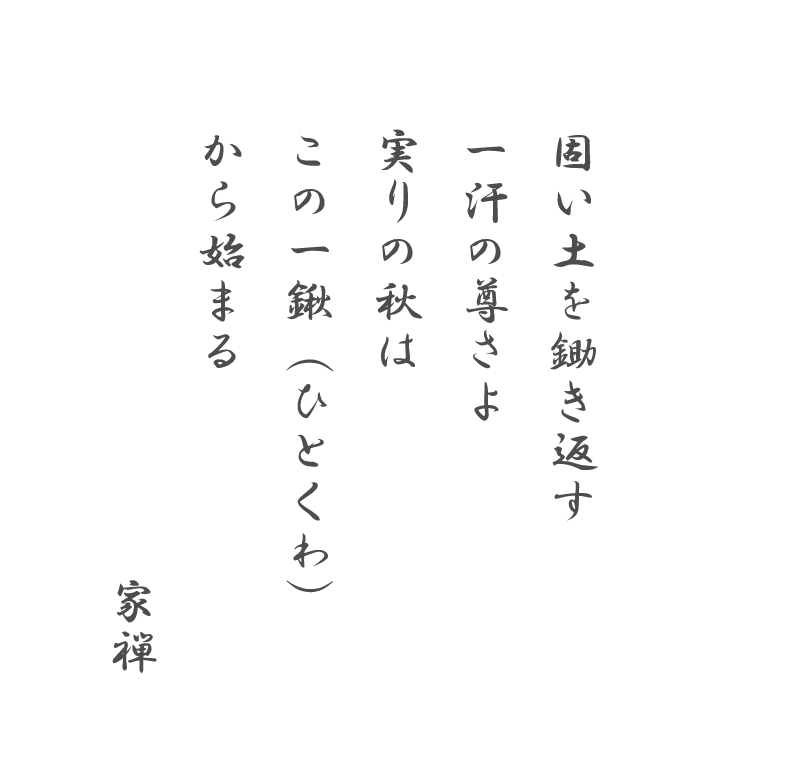 固い土を鋤き返す
一汗の尊さよ
実りの秋は
この一鍬（ひとくわ）
から始まる
家禅